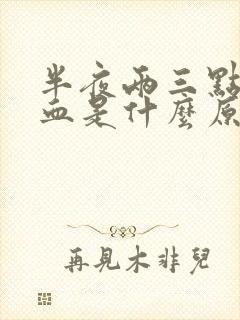 半夜兩三點
血是什麼原
再見木非兒